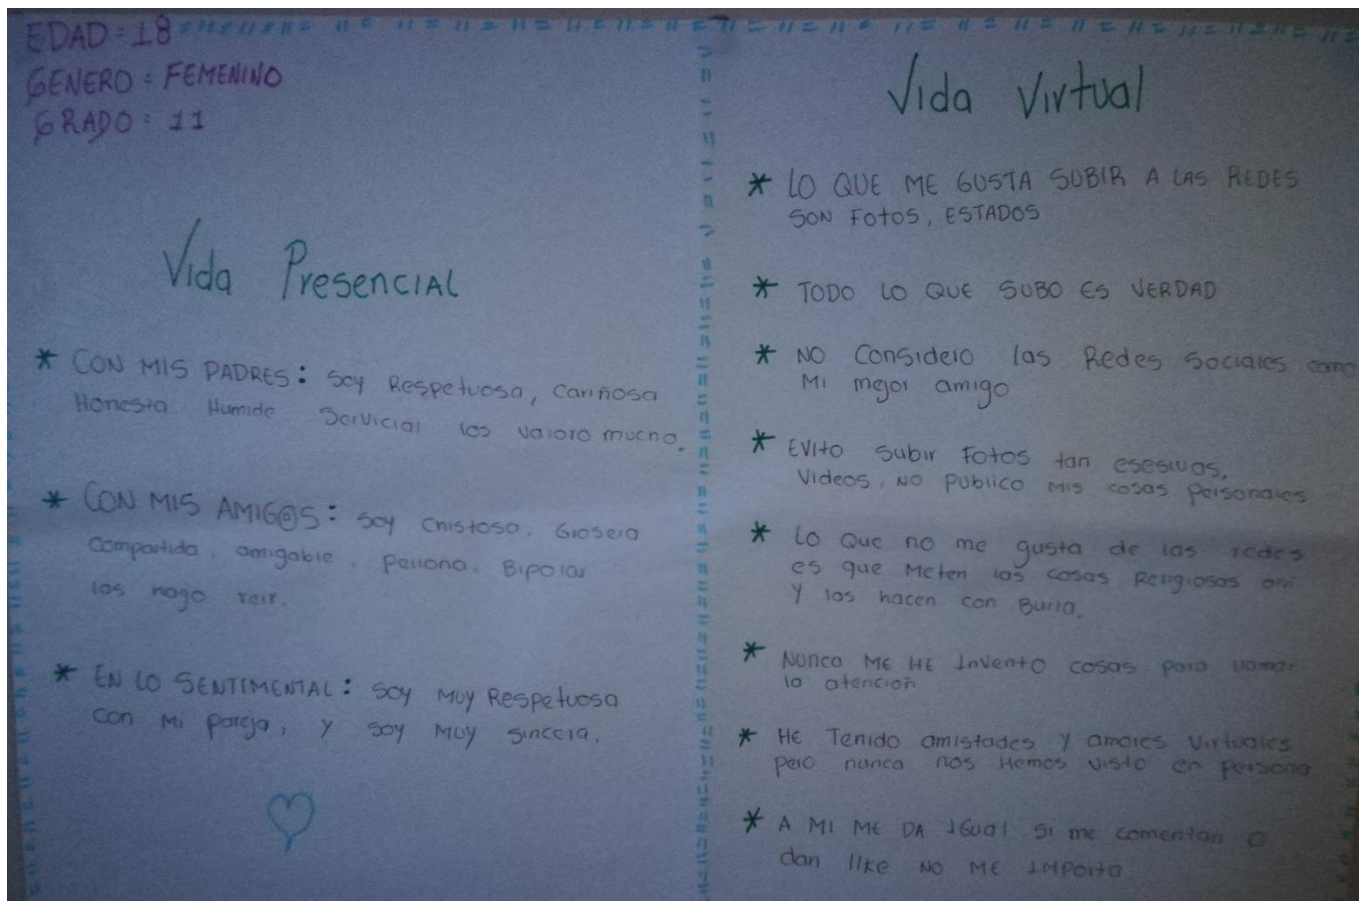 EDAD = 18
GENERO = FEMENINO
GRADO = 11
Vida Presencial
* CON MIS PADRES: soy Respetuosa, cariñosa
Honesta Humide Servicial los valoro mucho.
* CON MIS AMIG@S: soy chistosa, Grosera
compartida, amigable, peliona, Bipolar
los hago reir.
* EN LO SENTIMENTAL: soy MUY Respetuosa
con Mi pareja, y soy MUY sincera.
Vida Virtual
* LO QUE ME GUSTA SUBIR A LAS REDES
SON FOtOS, ESTADOS
* TODO LO QUE SUBO ES VERDAD
* NO Considero las Redes Sociales como
Mi mejor amigo
* EVItO subir FOtOS tan esesivas,
Videos, NO PUBlICO MIS cosas personales
* LO QUE no me gusta de las redes
es que Meten las cosas Religiosas ahi
Y las hacen con Burla.
* Nunca ME HE INVENtO cosas para llamar
la atencion
* HE Tenido amistades y amores Virtuales
pero nunca nos Hemos visto en persona
* A MI ME DA IGUAl SI me comentan o
dan like NO ME IMPORta